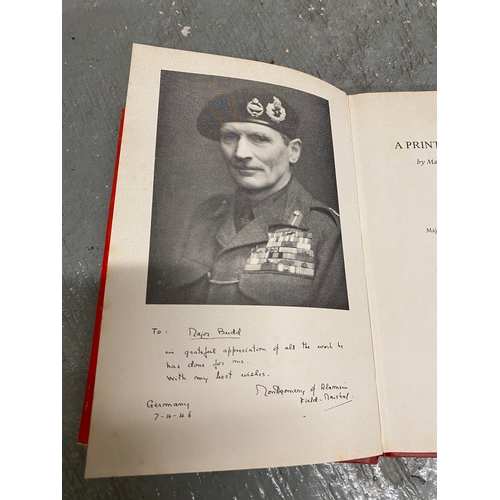 A PRINT
by Ma
Maj
To: Major Budd
in grateful appreciation of all the work he
has done for me.
With my best wishes.
Montgomery of Alamein
Field-Marshal.
Germany
7-4-46